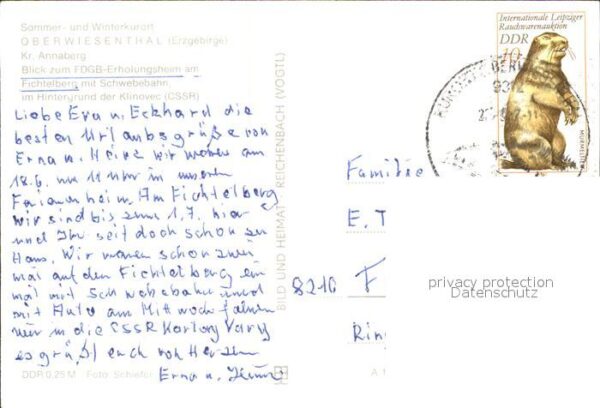 Sommer- und Winterkurort
OBERWIESENTHAL (Erzgebirge)
Kr. Annaberg
Blick zum FDGB-Erholungsheim am
Fichtelberg mit Schwebebahn,
im Hintergrund der Klinovec (CSSR)
Liebe Erna u. Eckhard die
besten Urlaubsgrüße von
Erna u. Heinz wir waren am
18.6. um 11 Uhr in unseren
Ferienheim. Am Fichtelberg
wir sind bis zum 1.7. hier
und Ihr seit doch schon zu
Haus. Wir waren schon zwei
mal auf den Fichtelberg ein
mal mit Schwebebahn und
mit Auto am Mittwoch fahren
wir in die CSSR Karlovy Vary
es grüßt euch von Herzen
Erna u. Heinz
DDR 0,25 M Foto: Schiefer
BILD UND HEIMAT REICHENBACH (VOGTL)
A 1
Internationale Leipziger
Rauchwarenauktion
DDR
10
MURMELTIER
Familie
E. T
8210 F
Rin
privacy protection
Datenschutz